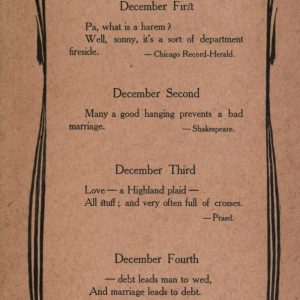 December First
Pa, what is a harem?
Well, sonny, it's a sort of department
fireside. — Chicago Record-Herald.
December Second
Many a good hanging prevents a bad
marriage. — Shakespeare.
December Third
Love — a Highland plaid —
All stuff; and very often full of crosses.
— Praed.
December Fourth
— debt leads man to wed,
And marriage leads to debt.